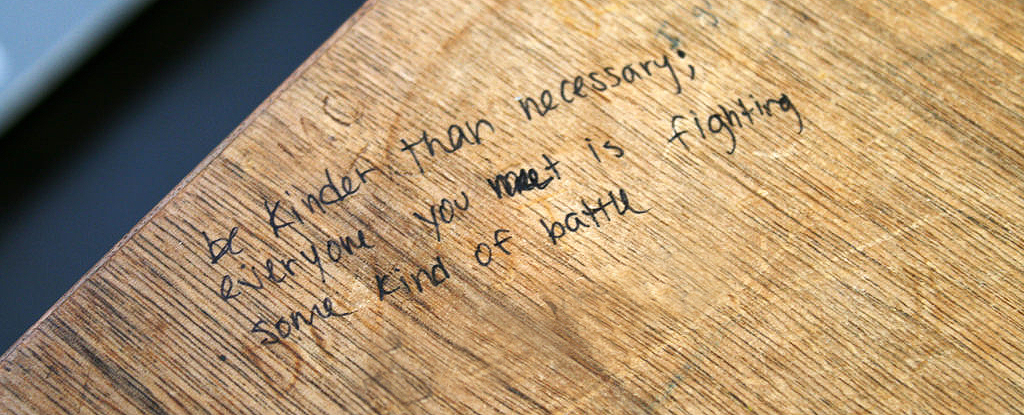 be kinder than necessary;
everyone you meet is fighting
some kind of battle